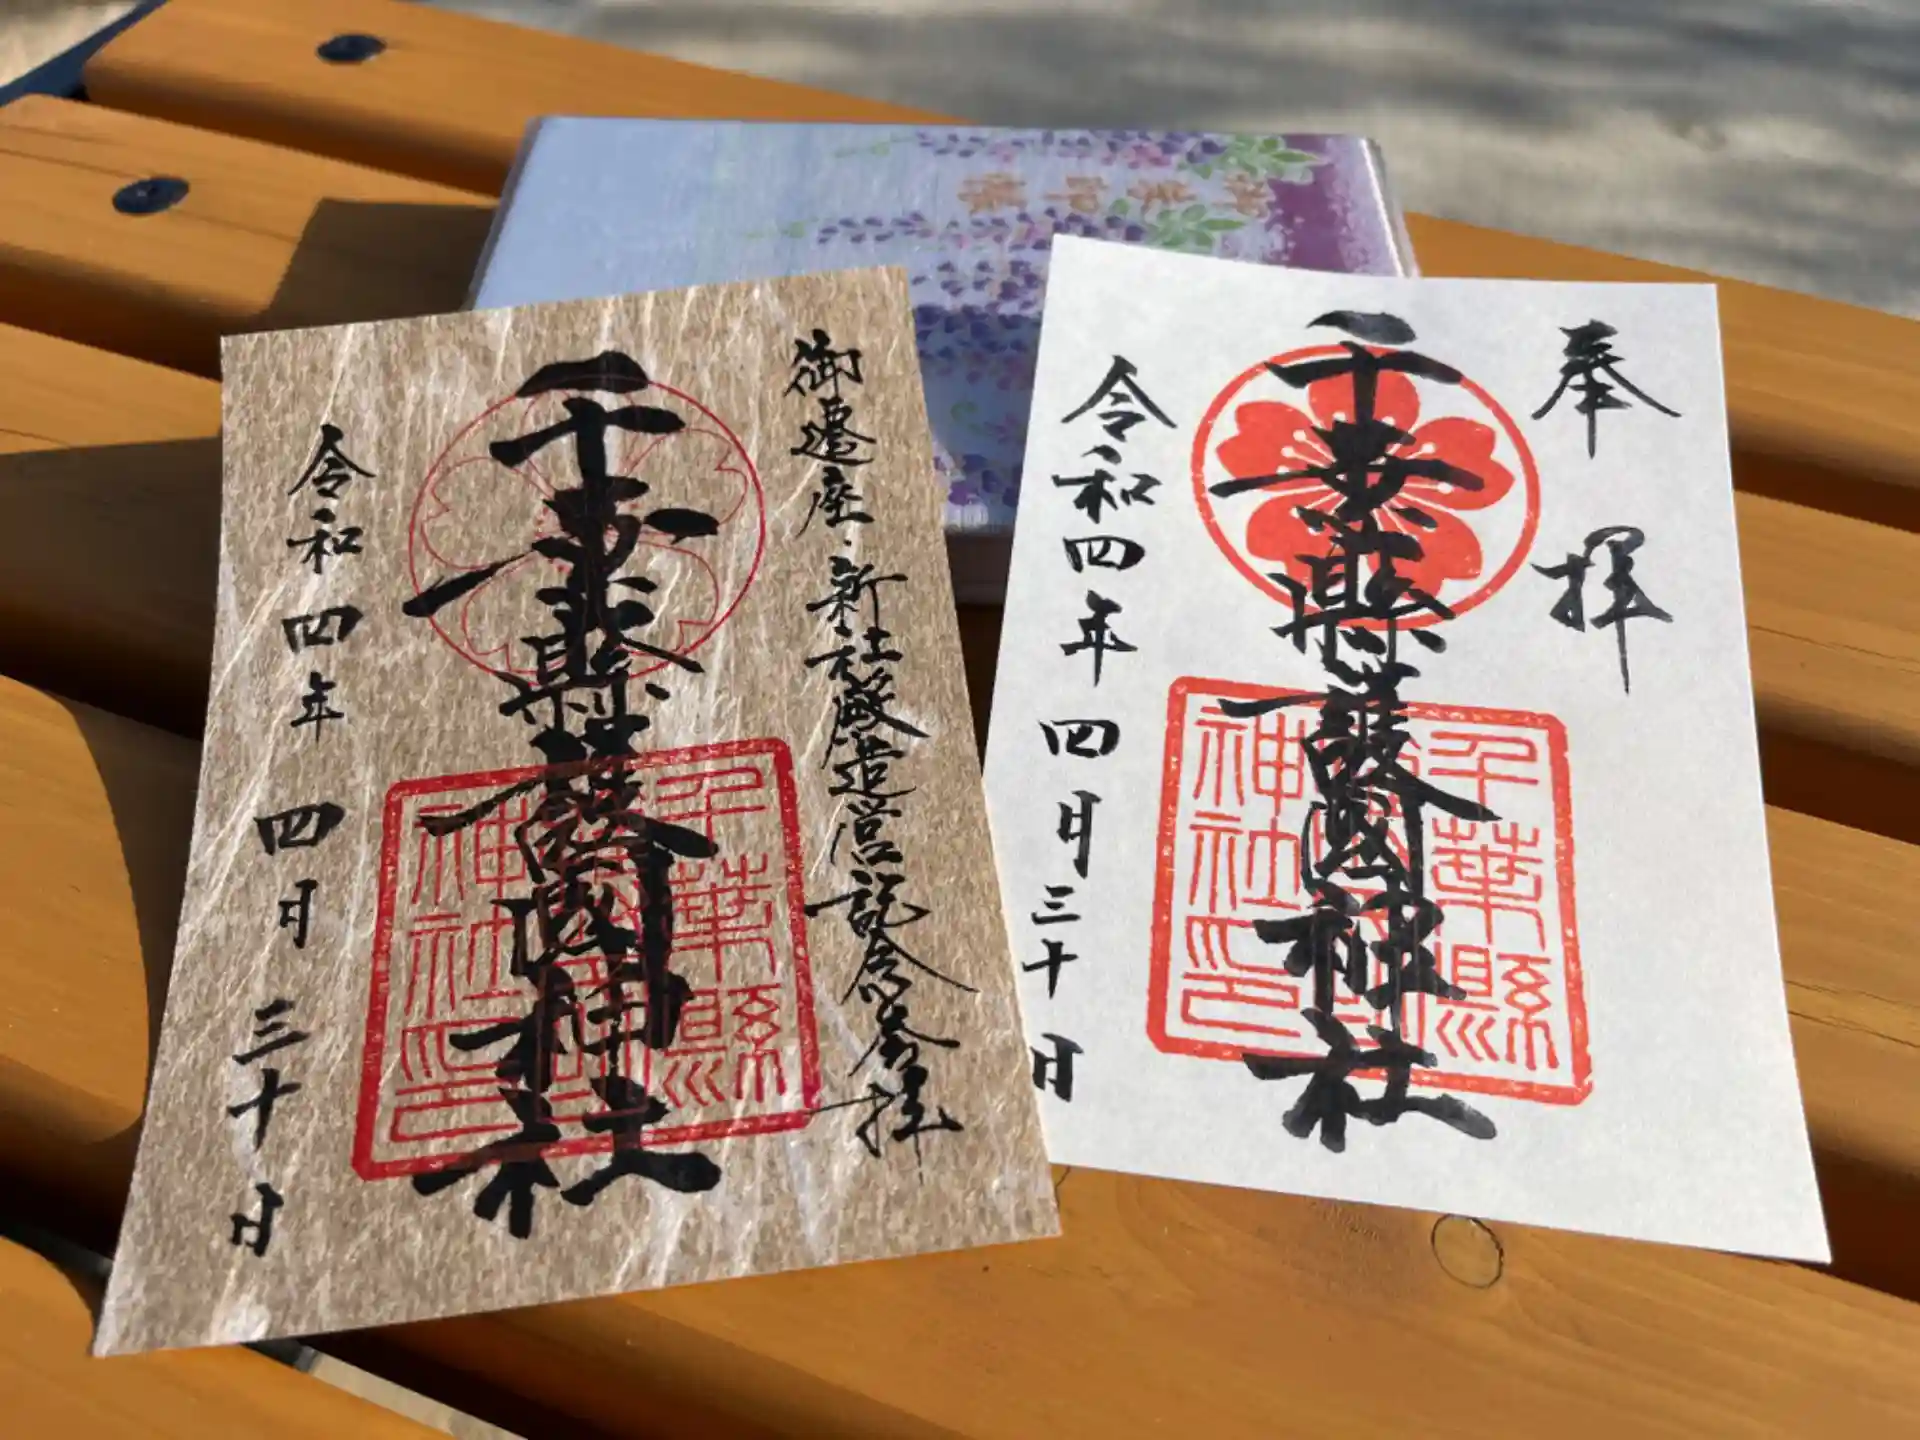 御遷座・新社殿造営記念参拝
千葉縣護國神社
千葉縣
護國
神社印
令和四年四月三十日
奉拝
千葉縣護國神社
千葉縣
護國
神社印
令和四年四月三十日